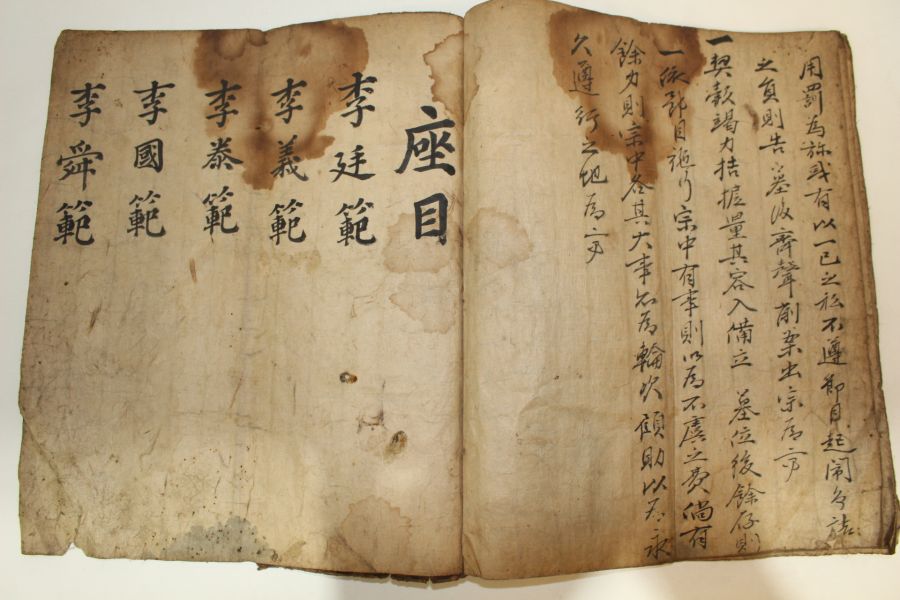 用罰為旀或有以一己之私不遵節目起鬧者
之員則告墓後齊聲削案出宗為齊
一契敎竭力拮据量其容入備立 墓位後餘存則
一依節目施行宗中有事則以為不虞之費倘有
餘力則宗中各其大事亦為輪次顧助以為永
久遵行之地為齊
座目
李廷範
李義範
李泰範
李國範
李舜範